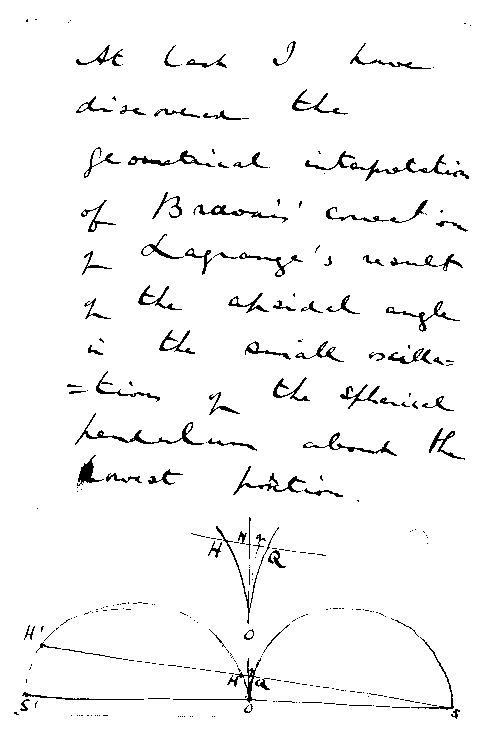 At last I have
discovered the
geometrical interpretation
of Bravais' correction
of Lagrange's result
of the apsidal angle
in the small oscilla=
=tions of the spherical
pendulum about the
lowest position.
H N r Q
O
H'
H Q
S' O S